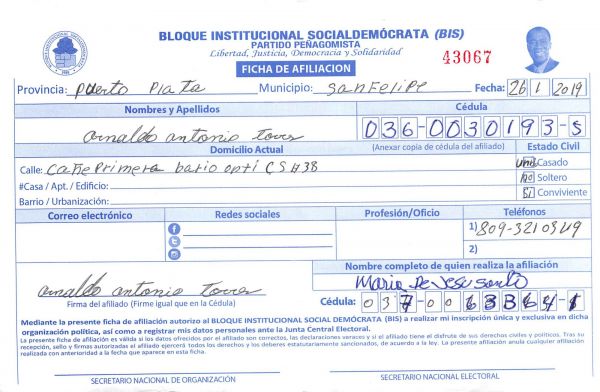 BLOQUE INSTITUCIONAL SOCIALDEMÓCRATA (BIS)
PARTIDO PEÑAGOMISTA
Libertad, Justicia, Democracia y Solidaridad
43067
FICHA DE AFILIACION
Provincia: Puerto Plata Municipio: San Felipe Fecha: 26 1 2019
Nombres y Apellidos Cédula
arnaldo antonio torres 036-0030193-5
(Anexar copia de cédula del afiliado)
Domicilio Actual Estado Civil
Calle: Calle Primera bario opti C S #38 Casado
#Casa / Apt. / Edificio: no Soltero
Barrio / Urbanización: Si Conviviente
Correo electrónico Redes sociales Profesión/Oficio Teléfonos
1) 809-321 0349
2)
Nombre completo de quien realiza la afiliación
arnaldo antonio torres Maria De Jesu Santo
Firma del afiliado (Firme igual que en la Cédula) Cédula: 037-00
Mediante la presente ficha de afiliación autorizo al BLOQUE INSTITUCIONAL SOCIAL DEMÓCRATA (BIS) a realizar mi inscripción única y exclusiva en dicha
organización política, así como a registrar mis datos personales ante la Junta Central Electoral.
La presente ficha de afiliación es válida si los datos ofrecidos por el afiliado son correctos, las declaraciones veraces y si el afiliado tiene el disfrute de sus derechos civiles y políticos. Tras su
recepción, sello y firmas autorizadas el afiliado ejercerá todos los derechos y los deberes estatutariamente sancionados, de acuerdo a la ley. La presente afiliación anula cualquier afiliación
realizada con anterioridad a la fecha que aparece en esta ficha.
SECRETARIO NACIONAL DE ORGANIZACIÓN SECRETARIO NACIONAL ELECTORAL